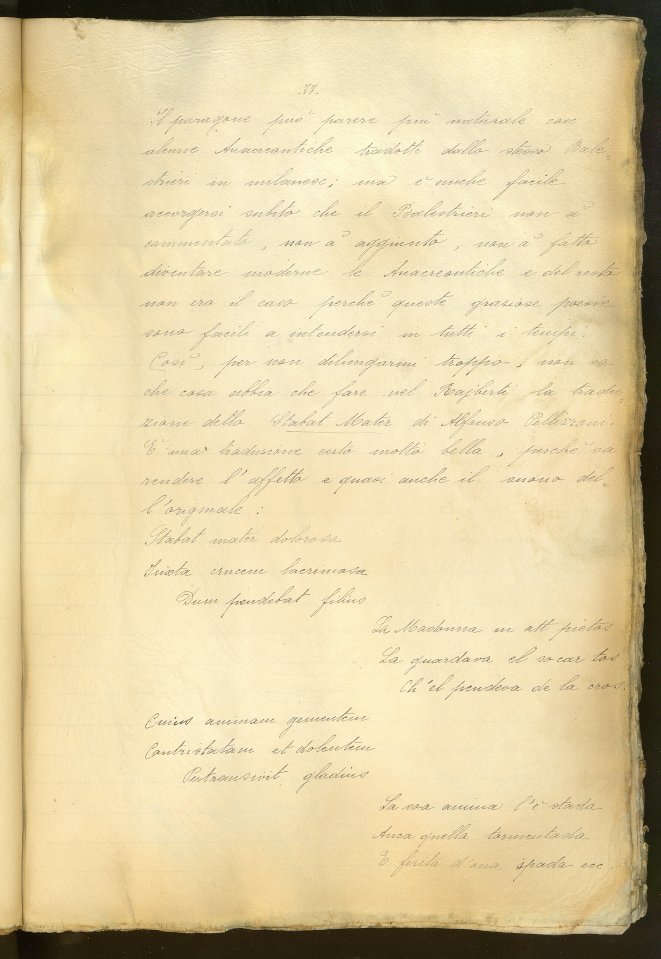 -77-
Il paragone può parere più naturale con
alcune Anacreontiche tradotte dallo stesso Bale-
strieri in milanese; ma è anche facile
accorgersi subito che il Balestrieri non à
commentato, non à aggiunto, non à fatto
diventare moderne le Anacreontiche e del resto
non era il caso perchè queste graziose poesie
sono facili a intendersi in tutti i tempi.
Così, per non dilungarmi troppo, non so
che cosa abbia che fare nel Rajberti la tradu-
zione dello Stabat Mater di Alfonso Pellizzoni.
È una traduzione certo molto bella, perchè sa
rendere l'affetto e quasi anche il suono del-
l'originale:
Stabat mater dolorosa
Iuxta crucem lacrimosa
Dum pendebat filius
La Madonna in att pietos
La guardava el so car tos
Ch'el pendeva de la cros.
Cuius animam gementem
Contristatam et dolentem
Pertransivit gladius
La soa anima l'è stada
Anca quella tormentada
E ferita d'ona spada ecc.